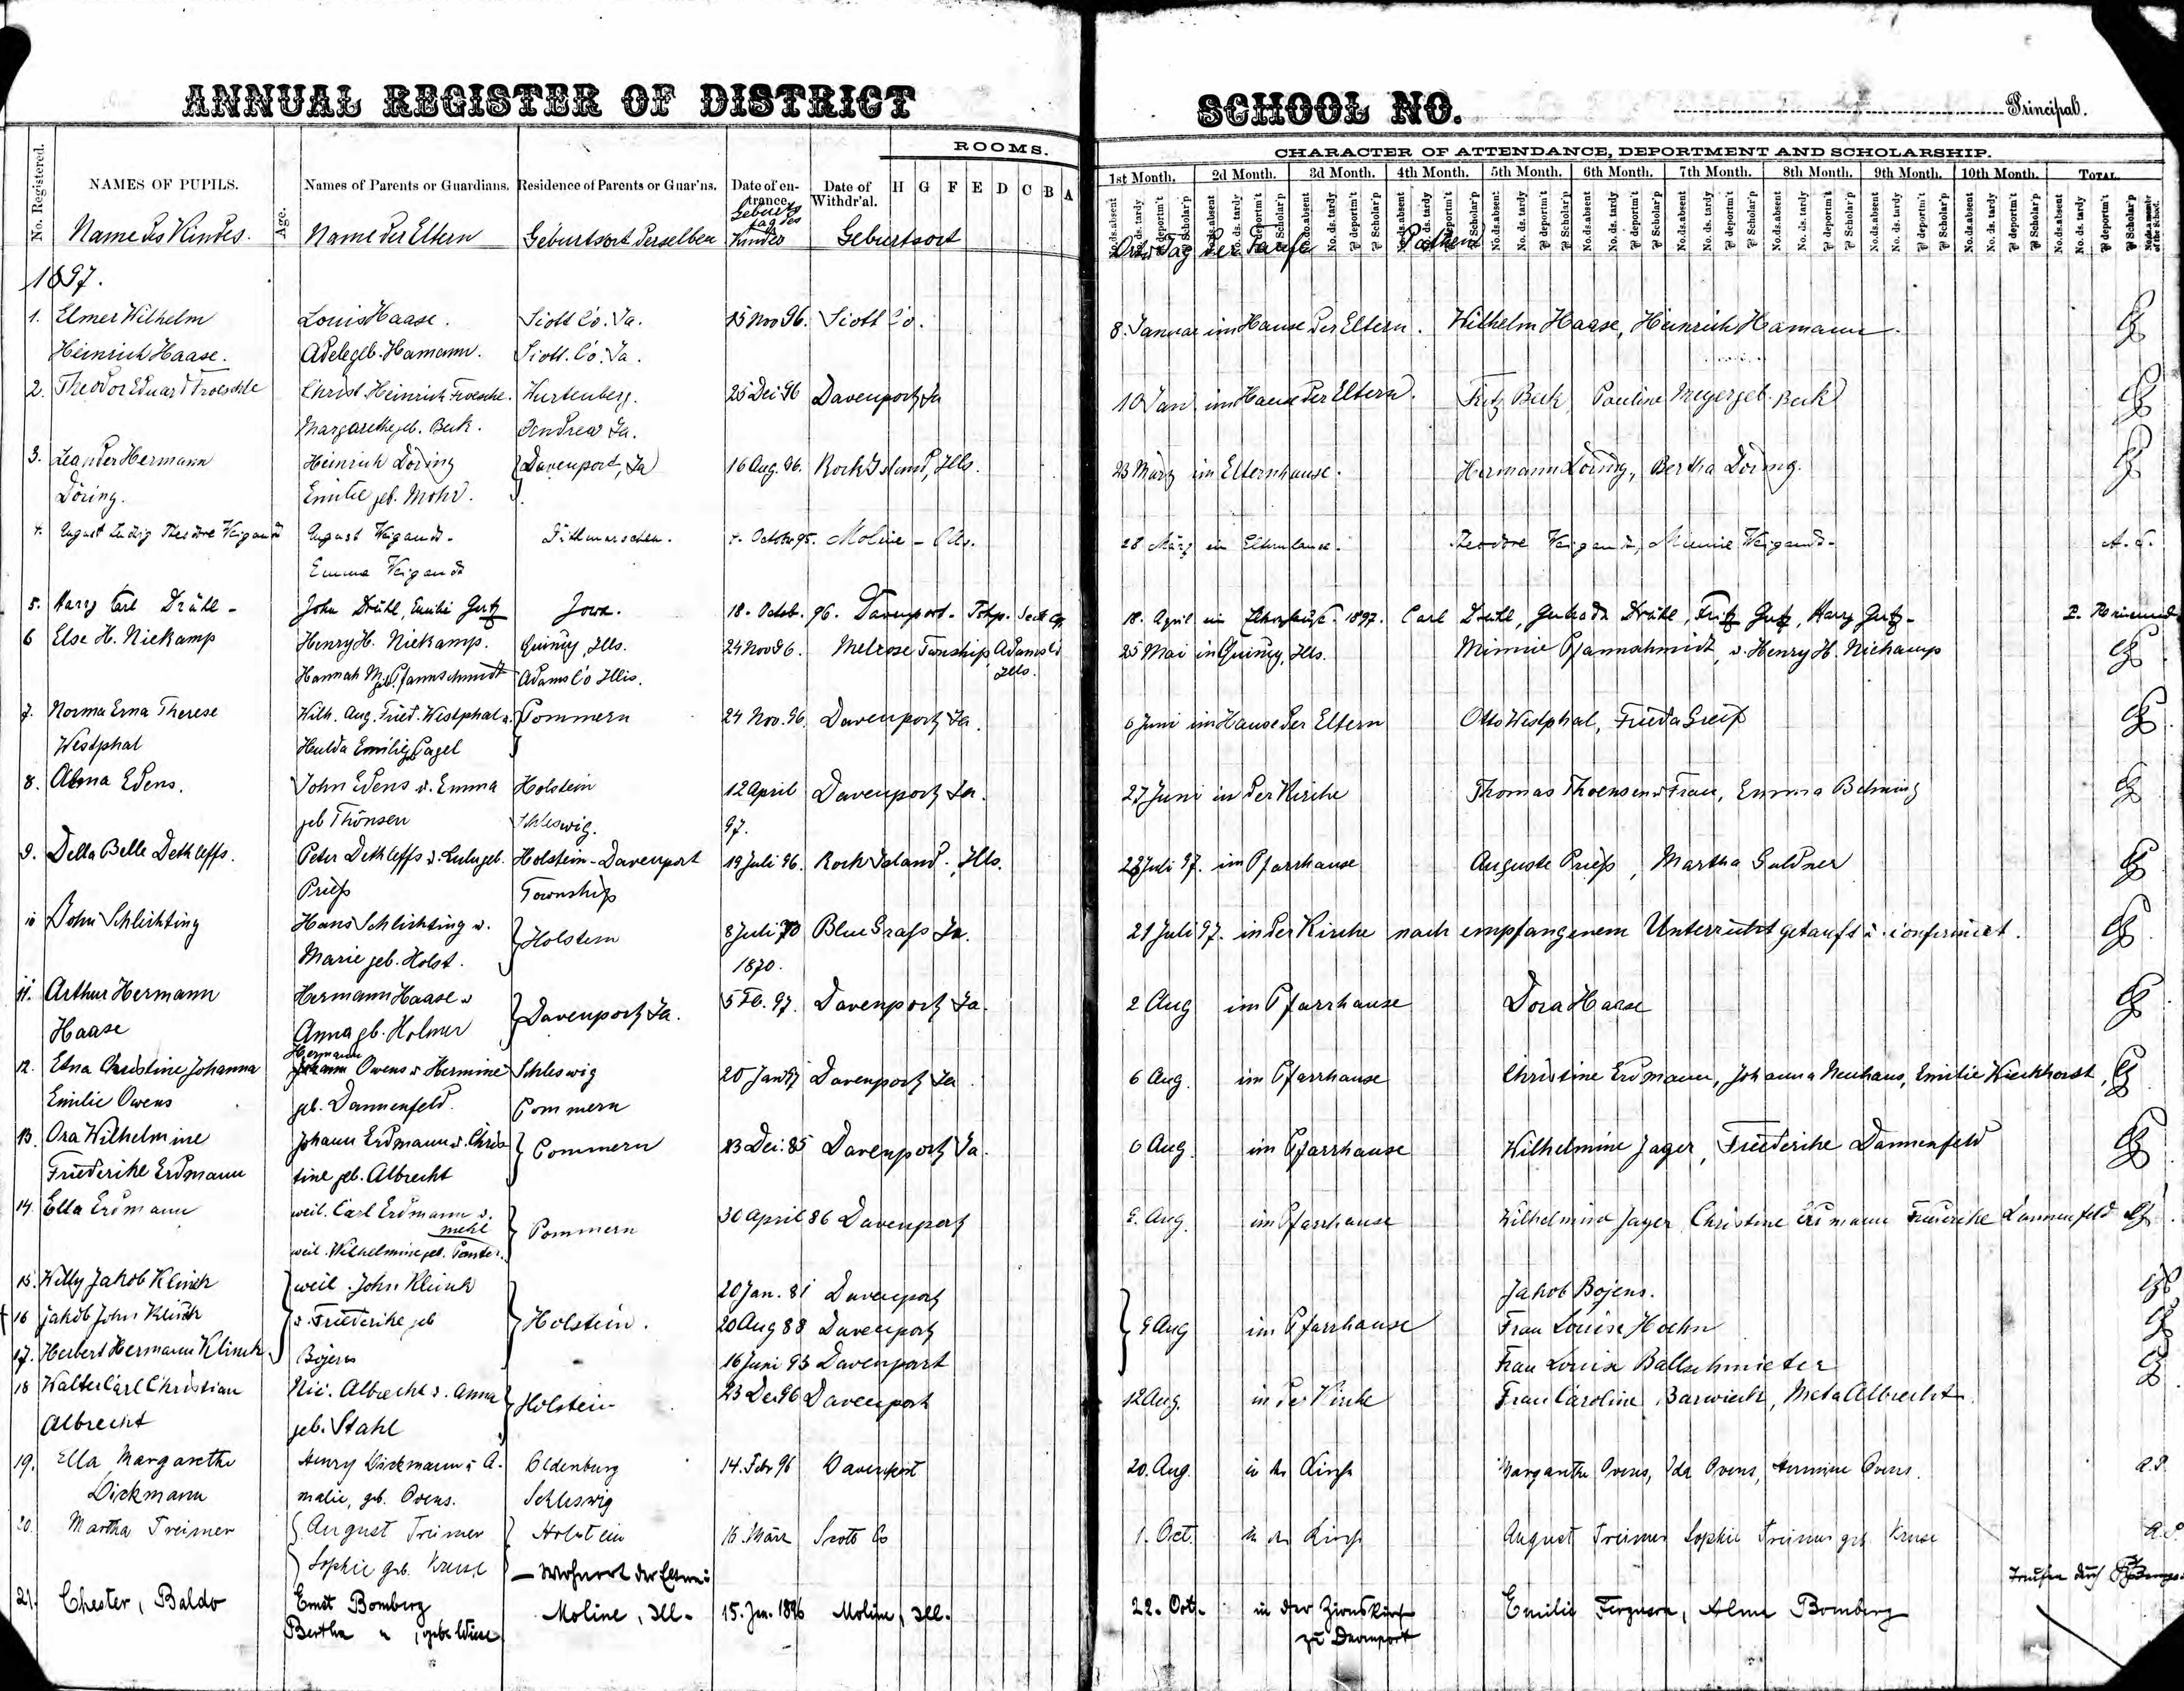 ANNUAL REGISTER OF DISTRICT SCHOOL NO. Principal.
ROOMS.
CHARACTER OF ATTENDANCE, DEPORTMENT AND SCHOLARSHIP.
No. Registered. NAMES OF PUPILS. Age. Names of Parents or Guardians. Residence of Parents or Guar'ns. Date of entrance. Date of Withdr'al. H G F E D C B A
1st Month. 2d Month. 3d Month. 4th Month. 5th Month. 6th Month. 7th Month. 8th Month. 9th Month. 10th Month. TOTAL
Name des Kindes. Name der Eltern Geburtsort derselben Geburtstag des Kindes Geburtsort Tag der Taufe Pathen
1897.
1. Elmer Wilhelm Louis Haase. Scott Co. Ia. 15 Nov 96. Scott Co. 8. Januar im Hause der Eltern. Wilhelm Haase, Heinrich Hamann.
Heinrich Haase. Adele geb. Hamann. Scott. Co. Ia.
2. Theodor Eduard Froeschle Christ. Heinrich Froeschle. Wurtenberg. 25 Dec 96 Davenport, Ia 10 Jan im Hause der Eltern. Fritz Beck Pauline Meyer geb. Beck
Margarethe geb. Beck. Andrew Ia.
3. Leander Hermann Heinrich Döring Davenport, Ia 16 Aug. 96. Rock Island, Ills. 23 März im Elternhause. Hermann Döring, Bertha Döring.
Döring. Emilie geb. Mohr.
4. August Ludwig Theodore Weigandt August Weigandt. Dithmarschen. 4. October 95. Moline - Ills. 28 März im Elternhause. Theodore Weigandt, Minnie Weigandt.
Emma Weigandt
5. Harry Carl Drühl - John Drühl, Emilie Gertz Iowa. 18. Octob. 96. Davenport. Tshp. Scott Co. 18. April im Elternhause. 1897. Carl Drühl, Drühl, Fritz Gertz, Harry Gertz.
6 Else H. Niekamp Henry H. Niekamp. Quincy, Ills. 24 Nov 96. Melrose Township, Adams Co 25 Mai in Quincy, Ills. Minnie Pfannschmidt, u. Henry H. Niekamp
Hannah M. geb. Pfannschmidt Adams Co Illis. Ills.
7. Norma Erna Therese Wilh. Aug. Fried. Westphal u. Pommern 24 Nov. 96. Davenport, Ia. 6 Juni im Hause der Eltern Otto Westphal, Frieda Greif
Westphal Hulda Emilie geb. Pagel
8. Alma Edens. John Edens u. Emma Holstein 12 April Davenport, Ia. 27 Juni in der Kirche Thomas Thoensen u Frau, Emma Behning
geb Thönsen Schleswig. 97.
9. Della Belle Dethleffs. Peter Dethleffs u. Lulu geb. Holstein - Davenport 19 Juli 96. Rock Island, Ills. 28 Juli 97. im Pfarrhause Auguste Prieß, Martha Guldner
Prieß Township
10 John Schlichting Hans Schlichting u. Holstein 8 Juli 70 Blue Grass Ia. 21 Juli 97. in der Kirche nach empfangenem Unterricht getauft u. confirmirt.
Marie geb. Holst. 1870.
11. Arthur Hermann Hermann Haase u Davenport, Ia. 5 Feb. 97. Davenport, Ia. 2 Aug im Pfarrhause Dora Haase
Haase Anna geb. Holmer
Hermann
12. Etna Christine Johanna Johann Owens u Hermine Schleswig 20 Jan 97 Davenport, Ia 6 Aug. im Pfarrhause Christine Erdmann, Johanna Neuhaus, Emilie Wiekhorst,
Emilie Owens geb. Dannenfeld. Pommern
13. Ora Wilhelmine Johann Erdmann u. Chris Pommern 23 Dec. 85 Davenport Ia. 6 Aug. im Pfarrhause Wilhelmine Jager, Friederike Dannenfeld
Friederike Erdmann tine geb. Albrecht
14. Ella Erdmann weil. Carl Erdmann u. Pommern 30 April 86 Davenport 6. Aug. im Pfarrhause Wilhelmine Jager Christine Erdmann Friederike Dannenfeld
weil. Wilhelmine geb.
15. Willy Jakob Klinck weil. John Klinck 20 Jan. 81 Davenport Jakob Bojens.
16 Jakob John Klinck u. Friederike geb Holstein. 20 Aug 88 Davenport 9 Aug im Pfarrhause Frau Louise Hoehn
17. Herbert Hermann Klinck Bojens 16 Juni 93 Davenport Frau Louise Ballschmieter
18 Walter Carl Christian Nic. Albrecht u. Anna Holstein 23 Dec 96 Davenport 12 Aug. in der Kirche Frau Caroline Barwick, Meta Albrecht
Albrecht geb. Stahl
19. Ella Margarethe Henry Dirkmann u A. Oldenburg 14. Febr 96 Davenport 20. Aug. in der Kirche Margarethe Ovens, Ida Ovens, Hermine Ovens. A.P.
Dirkmann malie, geb. Ovens. Schleswig
20. Martha Treimer August Treimer Holstein 16. März Scott Co 1. Oct. in der Kirche August Treimer Sophie Treimer geb Kruse A.P.
Sophie geb. Kruse — Wohnort der Eltern:
21. Chester, Baldo Ernst Bomberg Moline, Ill. 15. Jan. 1896 Moline, Ill. 22. Oct. in der Zionskirche Emilie Ferguson, Alma Bomberg
Bertha " , geb. Wiese zu Davenport